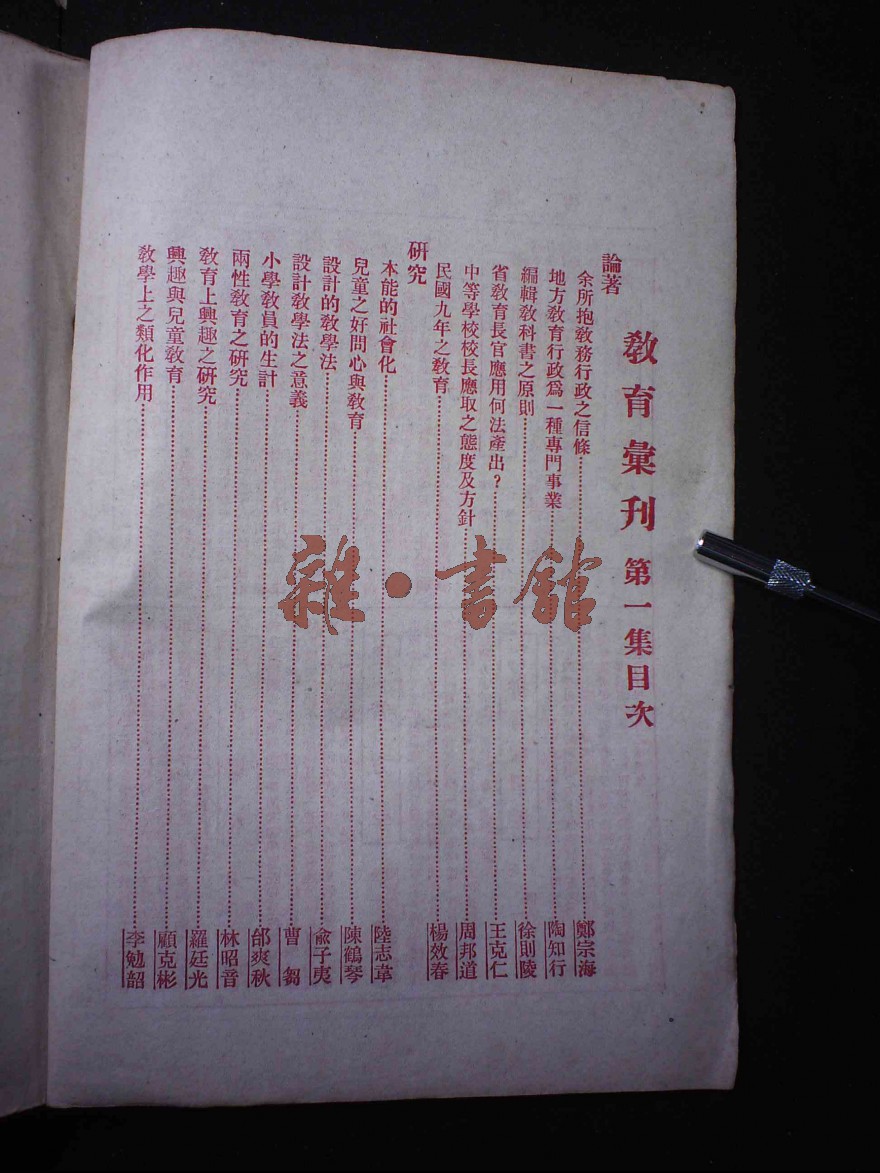 教育彙刊 第一集目次
論著
余所抱教務行政之信條……鄭宗海
地方教育行政爲一種專門事業……陶知行
編輯教科書之原則……徐則陵
省教育長官應用何法產出？……王克仁
中等學校校長應取之態度及方針……周邦道
民國九年之教育……楊效春
研究
本能的社會化……陸志韋
兒童之好問心與教育……陳鶴琴
設計的教學法……俞子夷
設計教學法之意義……曹芻
小學教員的生計……邰爽秋
兩性教育之研究……林昭音
教育上興趣之研究……羅廷光
興趣與兒童教育……顧克彬
教學上之類化作用……李勉韶
雜·書館